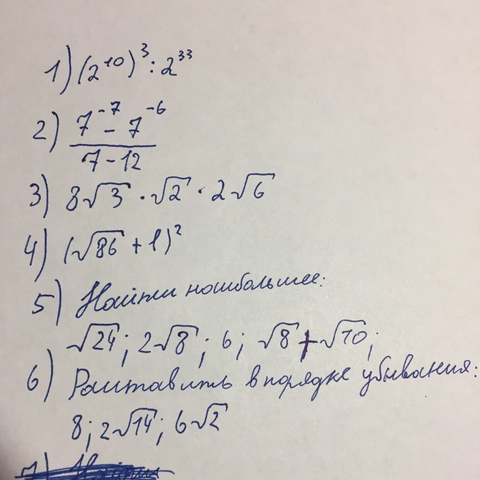 1) (2¹⁰)³ : 2³³
2) (7⁻⁷ - 7⁻⁶) / (7 - 12)
3) 8√3 · √2 · 2√6
4) (√86 + 1)²
5) Найти наибольшее:
√24; 2√8; 6; √8 + √10;
6) Расставить в порядке убывания:
8; 2√14; 6√2
7)